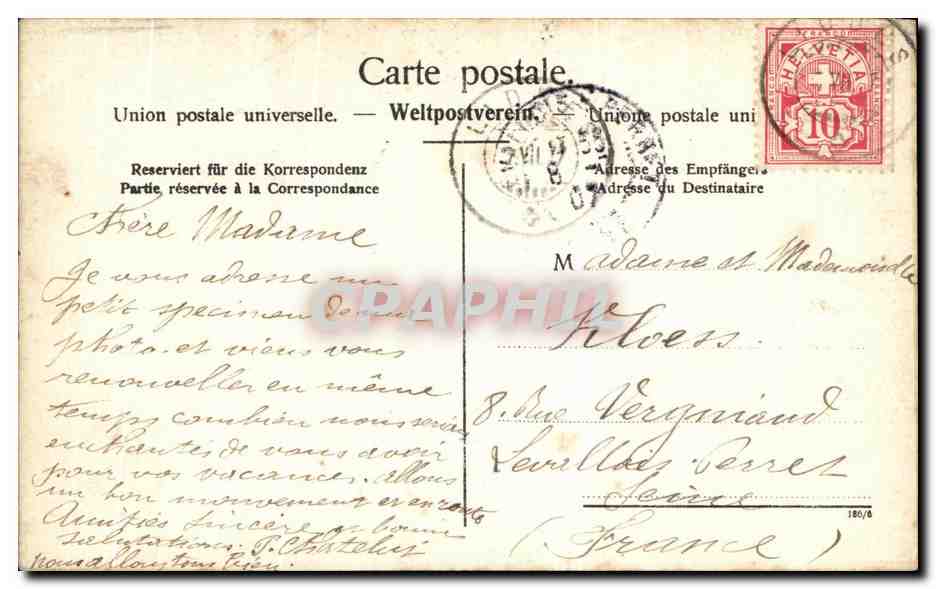 Carte postale.
Union postale universelle. — Weltpostverein. — Unione postale uni
Reserviert für die Korrespondenz
Partie réservée à la Correspondance
Adresse des Empfängers
Adresse du Destinataire
FRANCO
HELVETIA
10
Chère Madame
Je vous adresse un
petit specimen de ma
photo et viens vous
renouveller en même
temps combien nous serions
enchantés de vous avoir
pour vos vacances. allons
un bon mouvement et en route
Amitiés sincère et bonne
salutations.
nous allons tous bien.
Madame et Mademoiselle
Kloess
8. Rue Vergniaud
Levallois-Perret
Seine
(France)
186/6
CPAPHIL